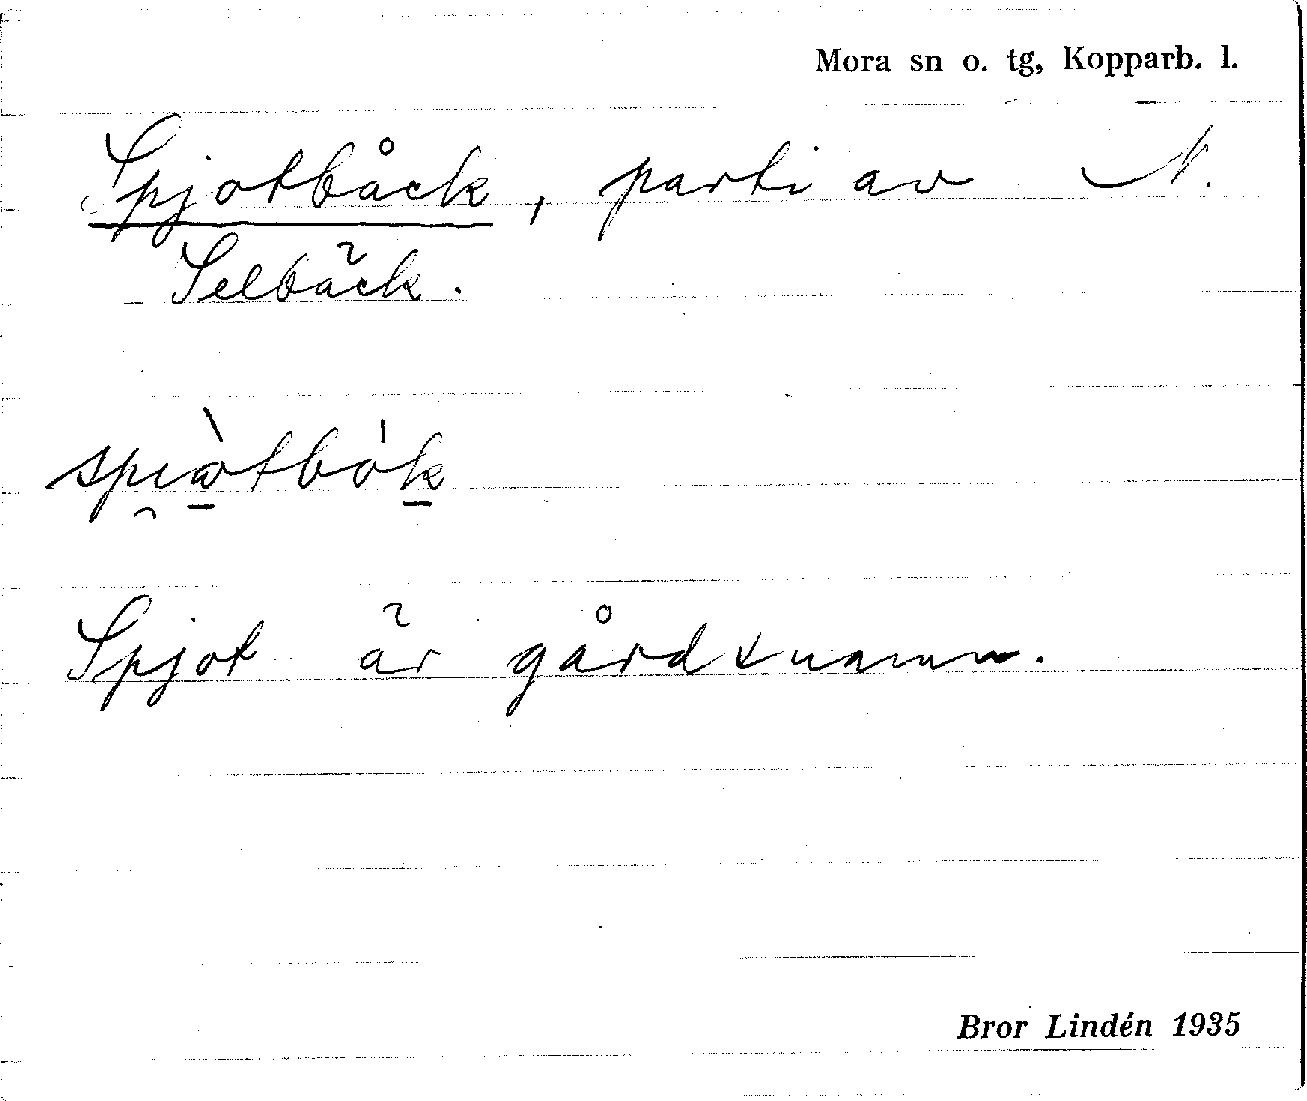 Mora sn o. tg, Kopparb. l.
Spjotbåck, parti av N.
Selbäck.
spi̯òtbòk
Spjot är gårdsnamn.
Bror Lindén 1935